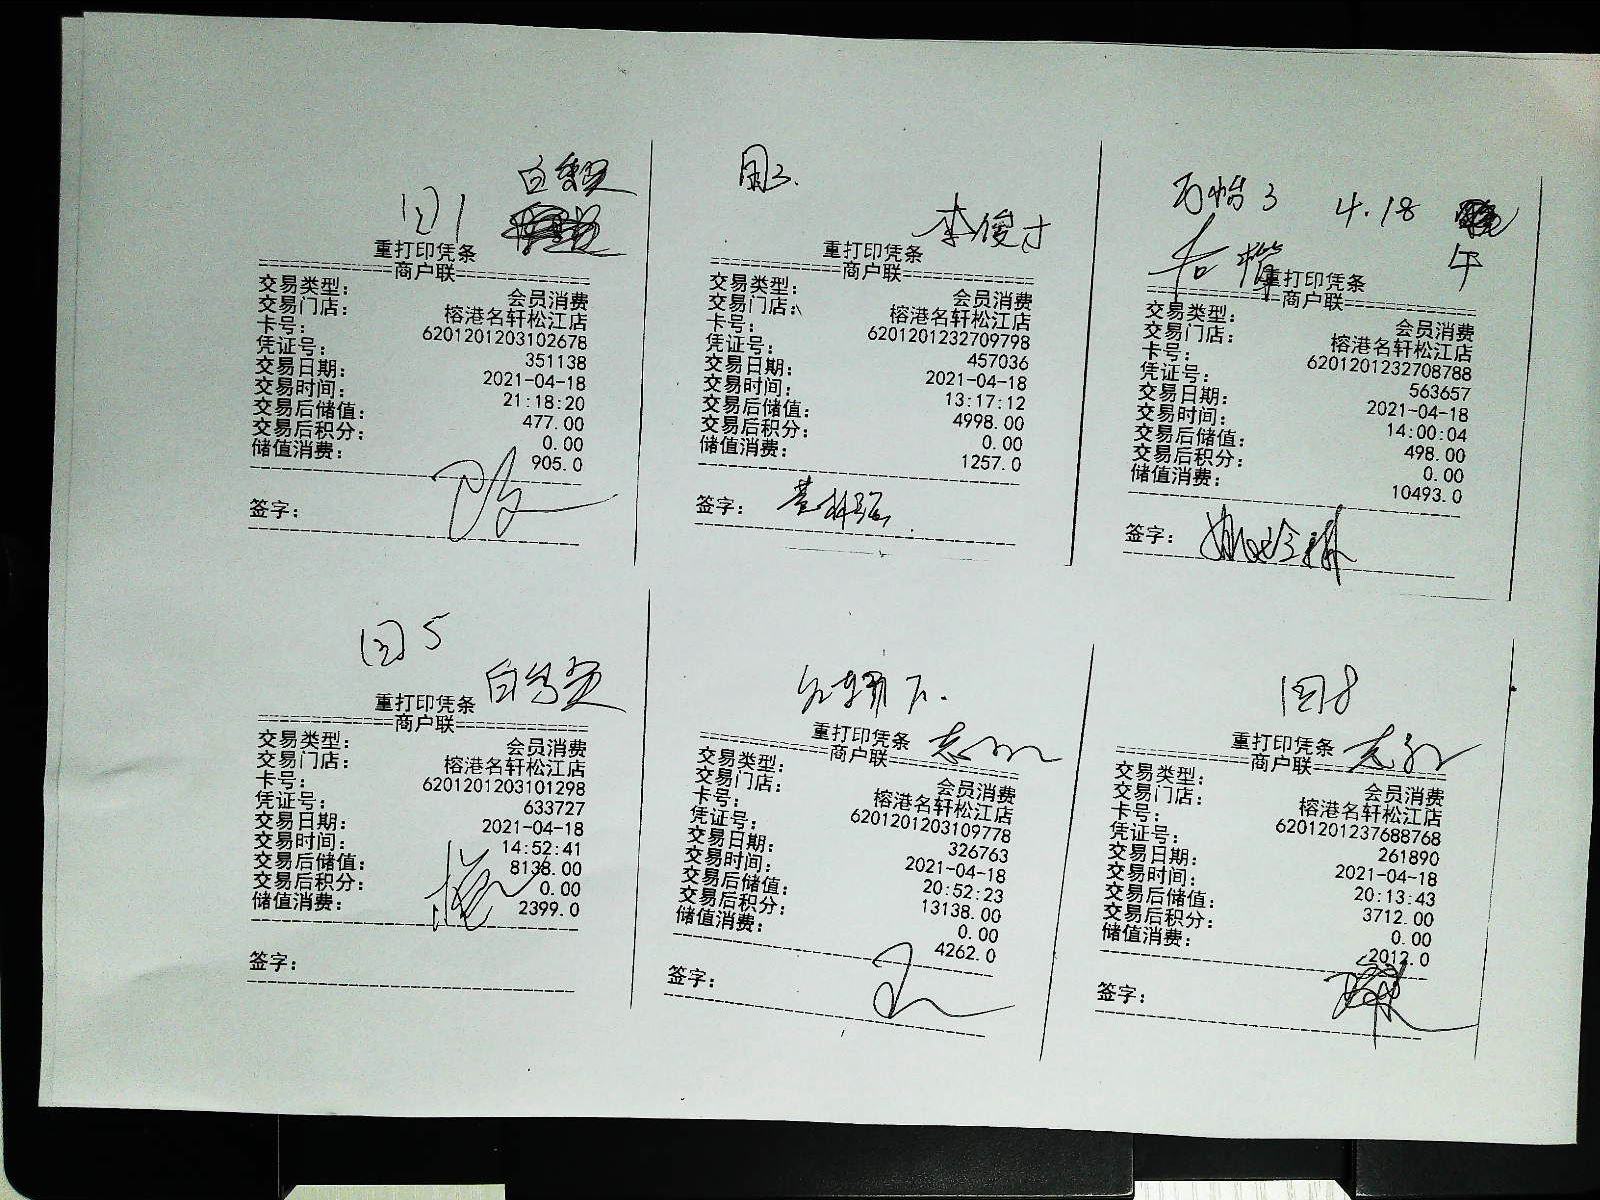 重打印凭条
商户联
交易类型: 会员消费
交易门店: 榕港名轩松江店
卡号: 6201201203102678
凭证号: 351138
交易日期: 2021-04-18
交易时间: 21:18:20
交易后储值: 477.00
交易后积分: 0.00
储值消费: 905.0
签字:
李俊才
重打印凭条
商户联
交易类型: 会员消费
交易门店: 榕港名轩松江店
卡号: 6201201232709798
凭证号: 457036
交易日期: 2021-04-18
交易时间: 13:17:12
交易后储值: 4998.00
交易后积分: 0.00
储值消费: 1257.0
签字:
4.18
午
重打印凭条
商户联
交易类型: 会员消费
交易门店: 榕港名轩松江店
卡号: 6201201232708788
凭证号: 563657
交易日期: 2021-04-18
交易时间: 14:00:04
交易后储值: 498.00
交易后积分: 0.00
储值消费: 10493.0
签字:
重打印凭条
商户联
交易类型: 会员消费
交易门店: 榕港名轩松江店
卡号: 6201201203101298
凭证号: 633727
交易日期: 2021-04-18
交易时间: 14:52:41
交易后储值: 8138.00
交易后积分: 0.00
储值消费: 2399.0
签字:
重打印凭条
商户联
交易类型: 会员消费
交易门店: 榕港名轩松江店
卡号: 6201201203109778
凭证号: 326763
交易日期: 2021-04-18
交易时间: 20:52:23
交易后储值: 13138.00
交易后积分: 0.00
储值消费: 4262.0
签字:
重打印凭条
商户联
交易类型: 会员消费
交易门店: 榕港名轩松江店
卡号: 6201201237688768
凭证号: 261890
交易日期: 2021-04-18
交易时间: 20:13:43
交易后储值: 3712.00
交易后积分: 0.00
储值消费: 2012.0
签字: